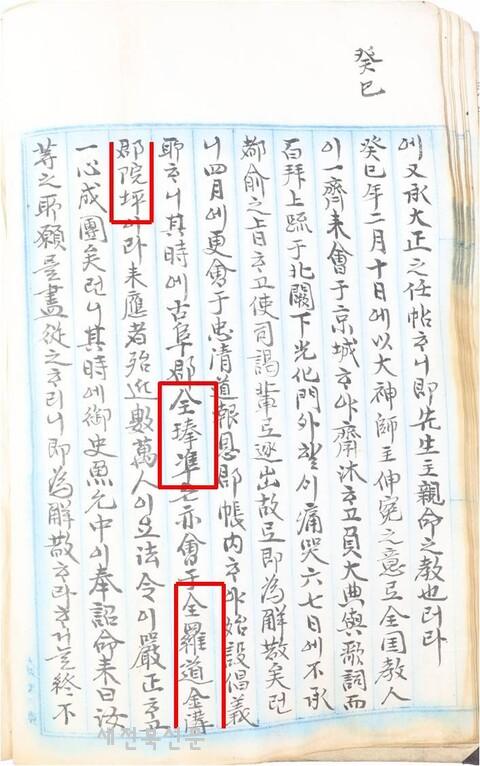 癸巳
에又承大正之任帖ᄒᆞ니即先生主親命之教也러라
癸巳年二月十日에以大神師主伸寃之意로全国教人
이一齊来會于京城ᄒᆞ야齋沐ᄒᆞ고負大典與歌詞而
百拜上疏于北闕下光化門外ᄒᆞᆯᄉᆡ痛哭六七日에不承
都俞之上旨ᄒᆞ고使司謁輩로逐出故로即為解散矣런
니四月에更會于忠清道報恩郡帳内ᄒᆞ야始設倡義
所ᄒᆞ니其時에古阜郡全琫準은亦會于全羅道金溝
郡院坪이라来應者殆近數萬人이오法令이嚴正ᄒᆞ고
一心成團矣런니其時에御史魚允中이奉詔命来曰汝
等之所願을盡從之ᄒᆞ리니即為解散ᄒᆞ라ᄒᆞ거늘終不
세전북신문